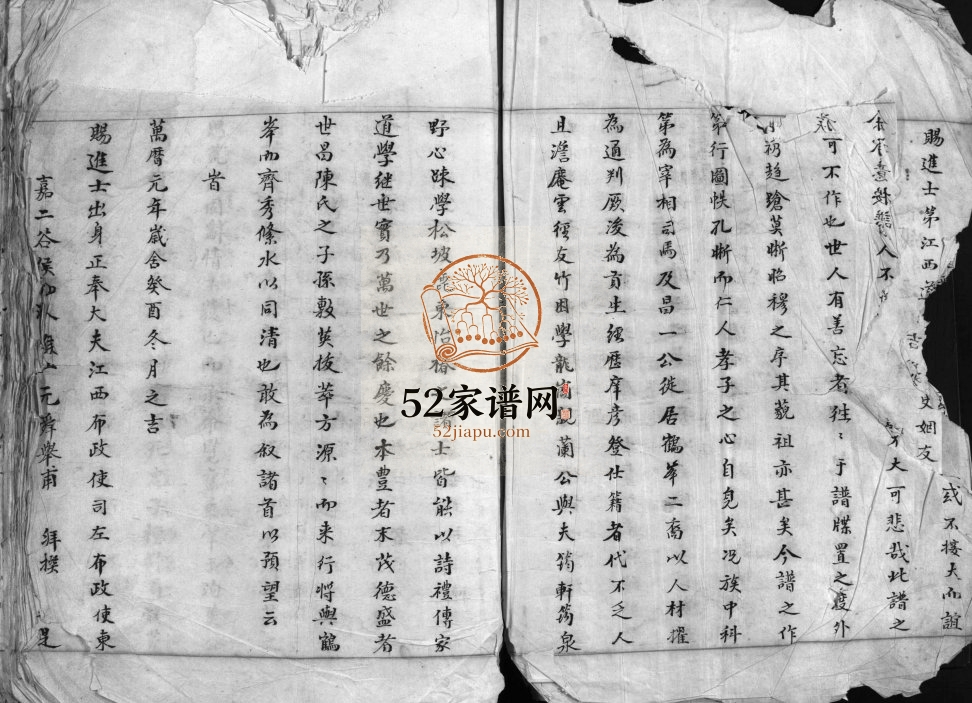 或不接夫而誼
賜進士第江西 史姻友
人不 大可悲哉此譜之
可不作也世人有善忘者往〻于譜牒置之度外
趋蹌莫晰昭穆之序其藐祖亦甚矣今譜之作
第行圖帙孔晰而仁人孝子之心自見矣况族中科
第為宰相司馬及昌一公徙居鶴峯二裔以人材擢
為通判厥後為貢生經歷庠彥登仕籍者代不乏人
且澹庵雲徑友竹困學龍 蘭公與夫筠軒筠泉
野心竦學松坡 東 士皆能以詩禮傳家
道學継世實乃萬世之餘慶也本豊者末茂德盛者
世昌陳氏之子孫敦英拔萃方源〻而来行將與鶴
峯而齊秀條水以同清也敢為叙諸首以預望云
旹
萬曆元年歲舍癸酉冬月之吉
賜進士出身正奉大夫江西布政使司左布政使東
嘉二谷侯 元 舜舉甫 拜撰
52家谱网
52jiapu.com